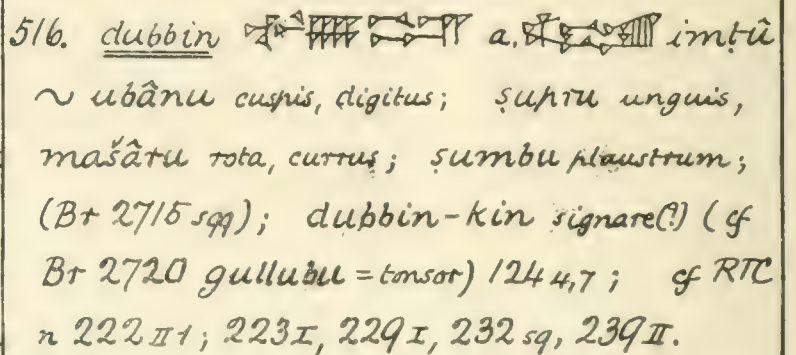 516. dubbin a. imṭû
~ ubânu cuspis, digitus; ṣupru unguis,
mašâru rota, currus; ṣumbu plaustrum;
(Br 2715 sqq); dubbin-kin signare(?) (cf
Br 2720 gullubu = tonsor) 124 4,7; cf RTC
n 222 II 1; 223 I, 229 I, 232 sq, 239 II.